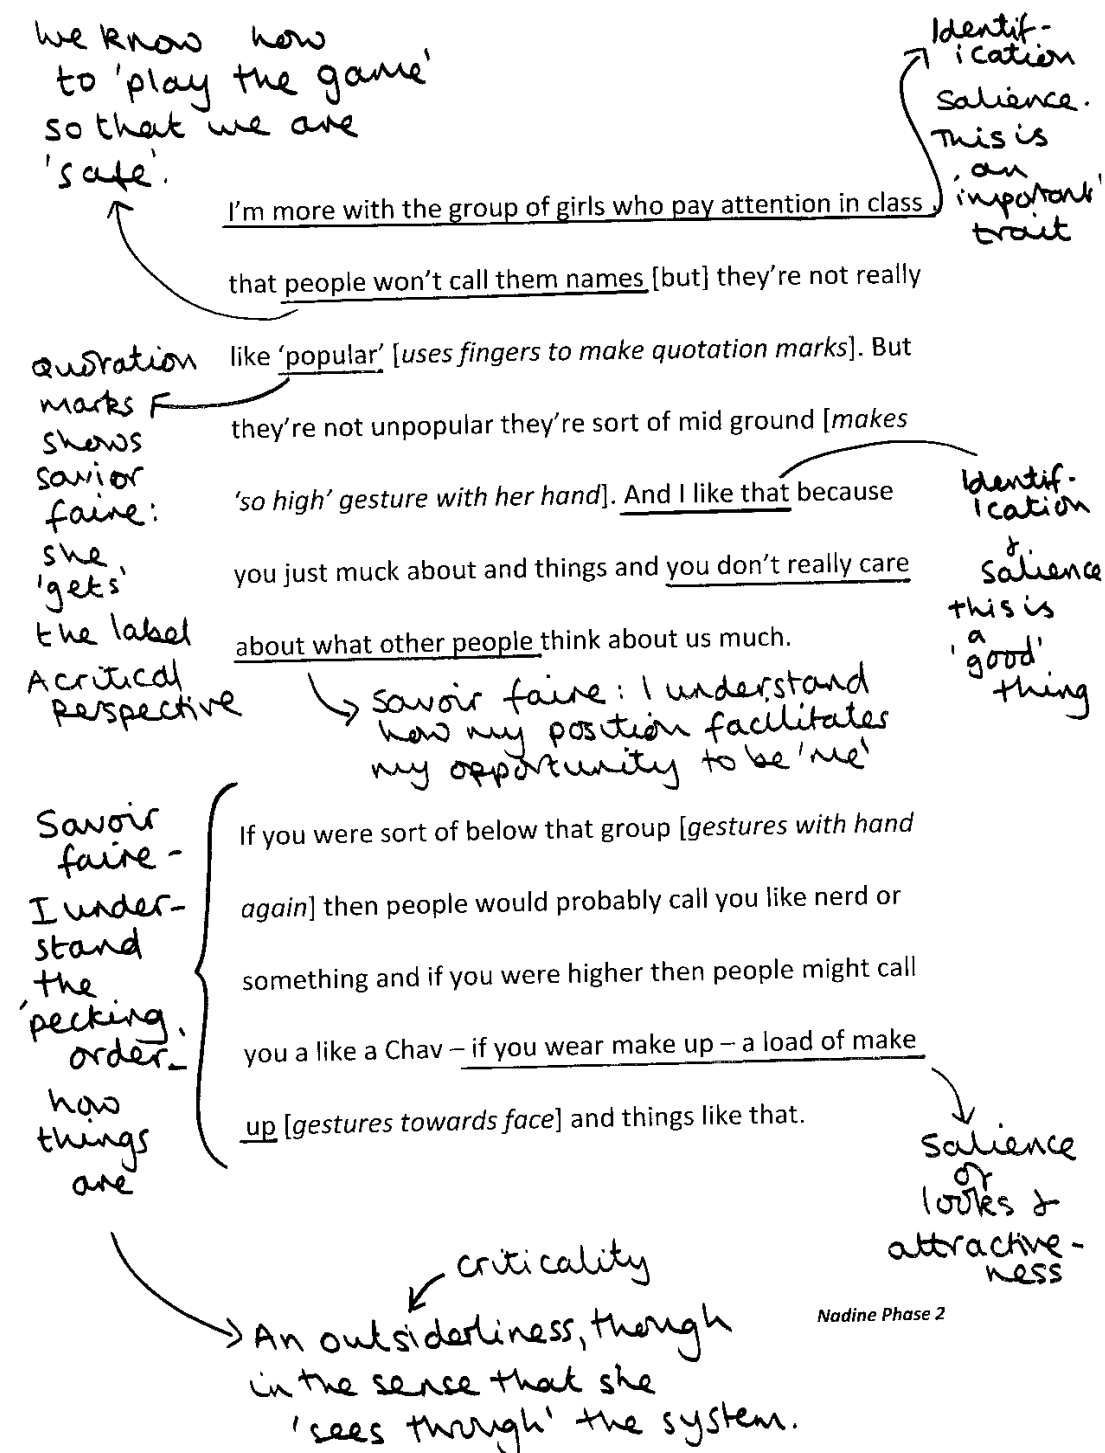 we know how
to 'play the game'
so that we are
'safe'.
Identif-
ication
salience.
This is
an
'important'
trait
I'm more with the group of girls who pay attention in class
that people won't call them names [but] they're not really
like 'popular' [uses fingers to make quotation marks]. But
they're not unpopular they're sort of mid ground [makes
'so high' gesture with her hand]. And I like that because
you just muck about and things and you don't really care
about what other people think about us much.
quotation
marks
shows
savior
faire:
she
'gets'
the label
A critical
perspective
Identif-
ication
&
salience
this is
a
'good'
thing
savoir faire: I understand
how my position facilitates
my opportunity to be 'me'
Savoir
faire -
I under-
stand
the
'pecking
order' -
how
things
are
If you were sort of below that group [gestures with hand
again] then people would probably call you like nerd or
something and if you were higher then people might call
you a like a Chav – if you wear make up – a load of make
up [gestures towards face] and things like that.
Salience
of
looks &
attractive-
ness
criticality
An outsiderliness, though
in the sense that she
'sees through' the system.
Nadine Phase 2